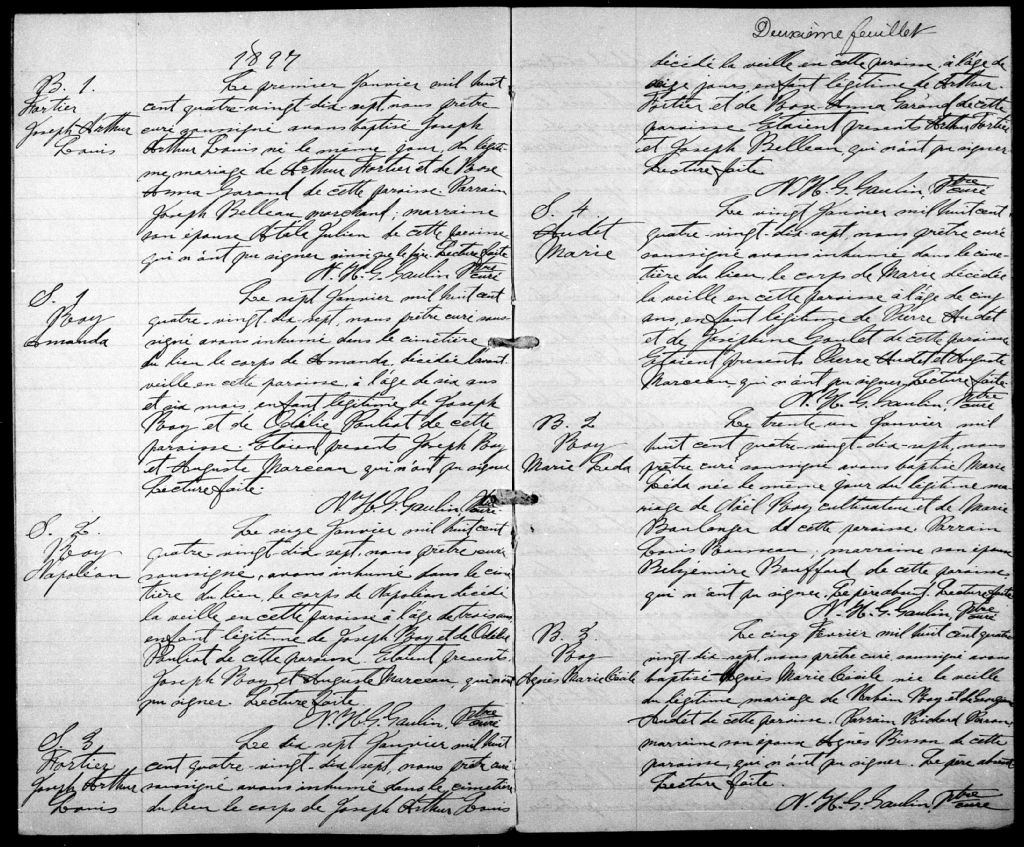 1897
B. 1.
Fortier
Joseph Arthur
Louis
Le premier Janvier mil huit
cent quatre-vingt dix sept, nous prêtre
curé soussigné avons baptisé Joseph
Arthur Louis né le même jour, du légiti-
me mariage de Arthur Fortier et de Rose
Anna Garand de cette paroisse. Parrain
Joseph Belleau marchand; marraine
son épouse Atale Julien de cette paroisse
qui n'ont pu signer ainsi que le père. Lecture faite
N. H. G. Gaulin, Ptre
curé
S. 1
Roy
Amanda
Le sept Janvier mil huit cent
quatre-vingt-dix-sept, nous prêtre curé sous-
signé avons inhumé dans le cimetière
du lieu le corps de Amanda, décédée l'avant-
veille en cette paroisse, à l'âge de six ans
et six mois, enfant légitime de Joseph
Roy et de Odélie Pouliot de cette
paroisse. Etaient présents Joseph Roy
et Auguste Marceau qui n'ont pu signer
Lecture faite
N. H. G. Gaulin, Ptre
curé
S. 2.
Roy
Napoléon
Le seize Janvier mil huit cent
quatre-vingt dix sept, nous prêtre curé
soussigné, avons inhumé dans le cime-
tière du lieu, le corps de Napoléon décédé
la veille en cette paroisse à l'âge de trois ans
enfant légitime de Joseph Roy et de Odélie
Pouliot de cette paroisse. Etaient présents
Joseph Roy et Auguste Marceau, qui n'ont
pu signer. Lecture faite
N. H. G. Gaulin, Ptre
curé
S. 3
Fortier
Joseph Arthur
Louis
Le dix sept Janvier mil huit
cent quatre-vingt-dix sept, nous prêtre curé
soussigné avons inhumé dans le cimetière
du lieu le corps de Joseph Arthur Louis
Deuxième feuillet
décédé la veille en cette paroisse, à l'âge de
seize jours, enfant légitime de Arthur
Fortier et de Rose Anna Garand de cette
paroisse. Etaient présents Arthur Fortier
et Joseph Belleau qui n'ont pu signer
Lecture faite
N. H. G. Gaulin, Ptre
curé
S. 4.
Audet
Marie
Le vingt Janvier mil huit cent
quatre-vingt-dix sept, nous prêtre curé
soussigné avons inhumé dans le cime-
tière du lieu, le corps de Marie décédée
la veille en cette paroisse à l'âge de cinq
ans, enfant légitime de Pierre Audet
et de Joséphine Goulet de cette paroisse
Etaient présents Pierre Audet et Auguste
Marceau qui n'ont pu signer. Lecture faite
N. H. G. Gaulin, Ptre
curé
B. 2
Roy
Marie Léda
Le trente un Janvier mil
huit cent quatre-vingt dix-sept, nous
prêtre curé soussigné avons baptisé Marie
Léda née le même jour du légitime ma-
riage de Noël Roy cultivateur et de Marie
Boulanger de cette paroisse. Parrain
Louis Rousseau; marraine son épouse
Belzémire Bouffard de cette paroisse,
qui n'ont pu signer. Le père absent. Lecture faite
N. H. G. Gaulin, Ptre
curé
B. 3.
Roy
Agnès Marie Cécile
Le cinq Février mil huit cent quatre
vingt-dix-sept, nous prêtre curé, soussigné avons
baptisé Agnès Marie Cécile née la veille
du légitime mariage de Urbain Roy et de
Audet de cette paroisse. Parrain Richard
marraine son épouse Agnès Bisson de cette
paroisse, qui n'ont pu signer. Le père absent
Lecture faite.
N. H. G. Gaulin, Ptre
curé